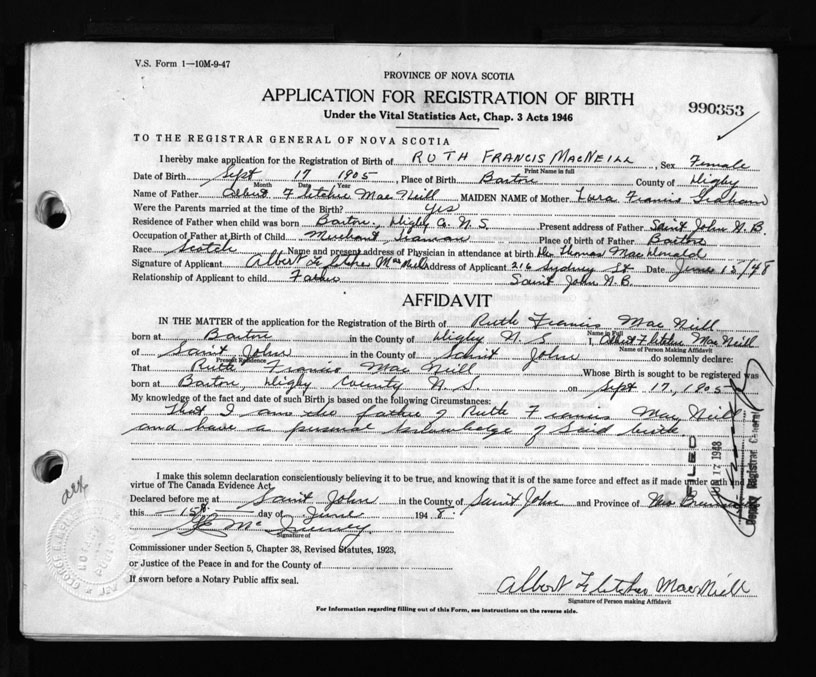 V.S. Form 1—10M-9-47
PROVINCE OF NOVA SCOTIA
APPLICATION FOR REGISTRATION OF BIRTH
990353
Under the Vital Statistics Act, Chap. 3 Acts 1946
TO THE REGISTRAR GENERAL OF NOVA SCOTIA
I hereby make application for the Registration of Birth of RUTH FRANCIS MACNEILL, Sex Female
Print Name in full
Date of Birth Sept 17 1905, Place of Birth Barton County of Digby
Month Date Year
Name of Father Albert Fletcher MacNeill MAIDEN NAME of Mother Francis
Were the Parents married at the time of Birth? Yes
Residence of Father when child was born Barton. Digby Co. N.S. Present address of Father Saint John N.B.
Occupation of Father at Birth of Child Merchant Place of Birth of Father Barton
Race Scotch Name and present address of Physician in attendance at birth Dr. Thomas MacDonald
Signature of Applicant Albert Fletcher MacNeill Address of Applicant 216 Sydney St Date June 15/48
Relationship of Applicant to child Father Saint John N.B.
AFFIDAVIT
IN THE MATTER of the application for the Registration of Birth of Ruth Francis MacNeill
Name in Full
born at Barton in the County of Digby N.S. I, Albert Fletcher MacNeill
Name of Person Making Affidavit
of Saint John in the County of Saint John do solemnly declare:
Present Residence
That Ruth Francis MacNeill Whose Birth is sought to be registered was
born at Barton, Digby County N.S. on Sept 17, 1905
My knowledge of the fact and date of such Birth is based on the following Circumstances:
That I am the father of Ruth Francis MacNeill
and have a personal knowledge of said birth
I make this solemn declaration conscientiously believing it to be true, and knowing that it is of the same force and effect as if made under oath and
virtue of The Canada Evidence Act.
Declared before me at Saint John in the County of Saint John and Province of New Brunswick
this 15th day of June 1948.
Signature of
Commissioner under Section 5, Chapter 38, Revised Statutes, 1923,
or Justice of the Peace in and for the County of
If sworn before a Notary Public affix seal.
Albert Fletcher MacNeill
Signature of Person making Affidavit
For Information regarding filling out of this Form, see instructions on the reverse side.
FILED
17 1948
Deputy Registrar General